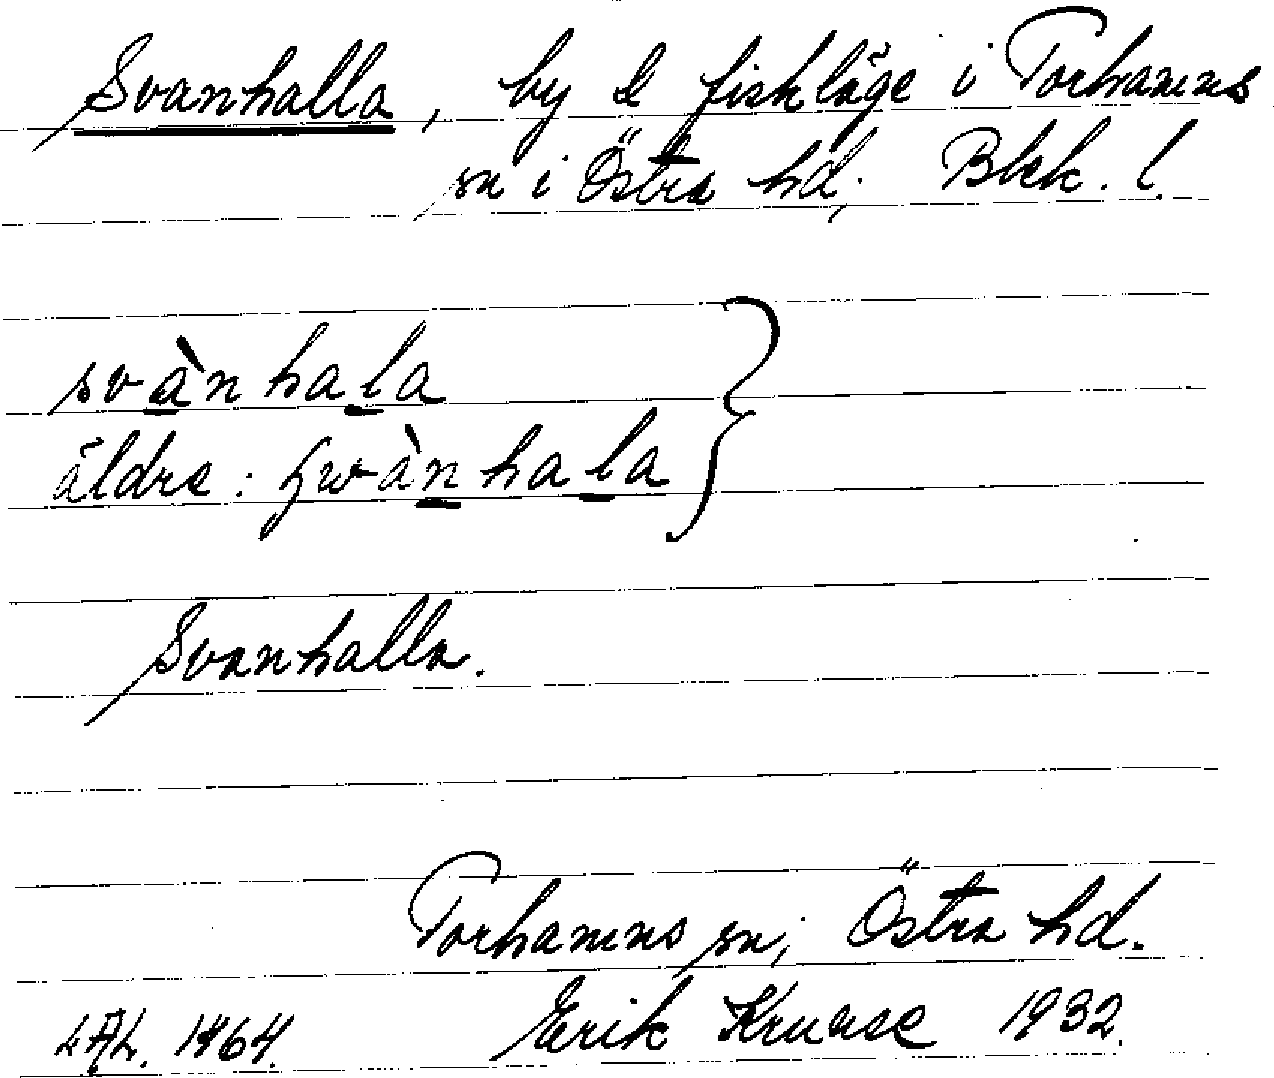 Svanhalla, by & fiskläge i Torhamns
sn i Östra hd, Blek. l.
svànhala
äldre: swànhala
Svanhalla.
Torhamns sn, Östra hd.
Erik Kruuse 1932.
LAL. 1864.